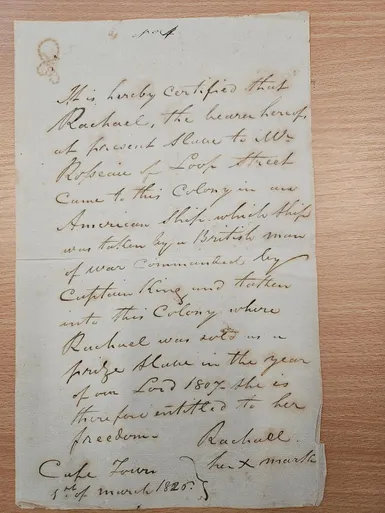 No 4
It is hereby certified that
Rachael, the bearer hereof,
at present Slave to Mr
Rosseau of Loop Street
came to this Colony in an
American Ship which Ship
was taken by a British man
of war commanded by
Captain King and taken
into this Colony where
Rachael was sold as a
prize Slave in the year
of our Lord 1807 she is
therefore entitled to her
freedom.
Rachael.
her X mark
Cape Town
of march 1826.